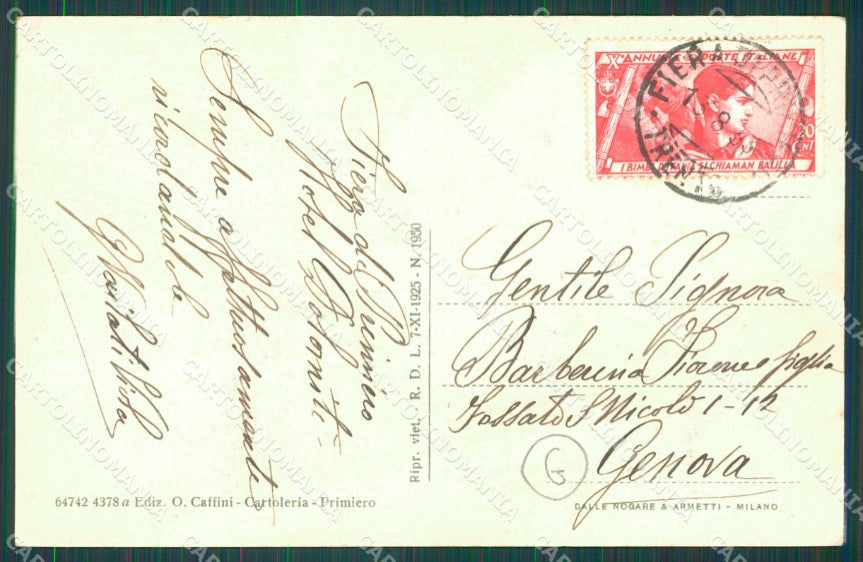 Fiera di Primiero
Hotel Dolomiti -
Sempre affettuosamente
ricordandole
Ripr. viet. - R. D. L. 7-XI-1925 - N. 1950
64742 4378 a Ediz. O. Caffini - Cartoleria - Primiero
Xº ANNUALE
I BIMBI D'ITALIA SI CHIAMAN BALILLA
20
FIERA DI PRIMIERO
Gentile Signora
Barberina Fiorone e figlia
Fossato S Nicolò 1-12
G
Genova
DALLE NOGARE & ARMETTI - MILANO
CARTOLINOMANIA